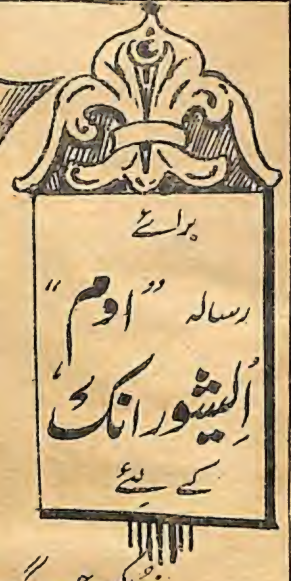 برائے
رسالہ ”اوم“
اِلیشور انک
کے لئے